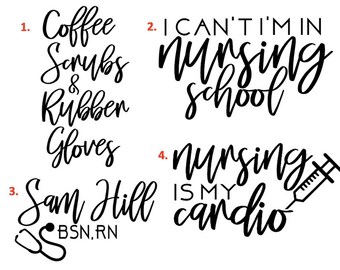 1.
Coffee
Scrubs
&
Rubber
Gloves
2.
I CAN'T I'M IN
nursing
school
3.
Sam Hill
BSN, RN
4.
nursing
IS MY
cardio